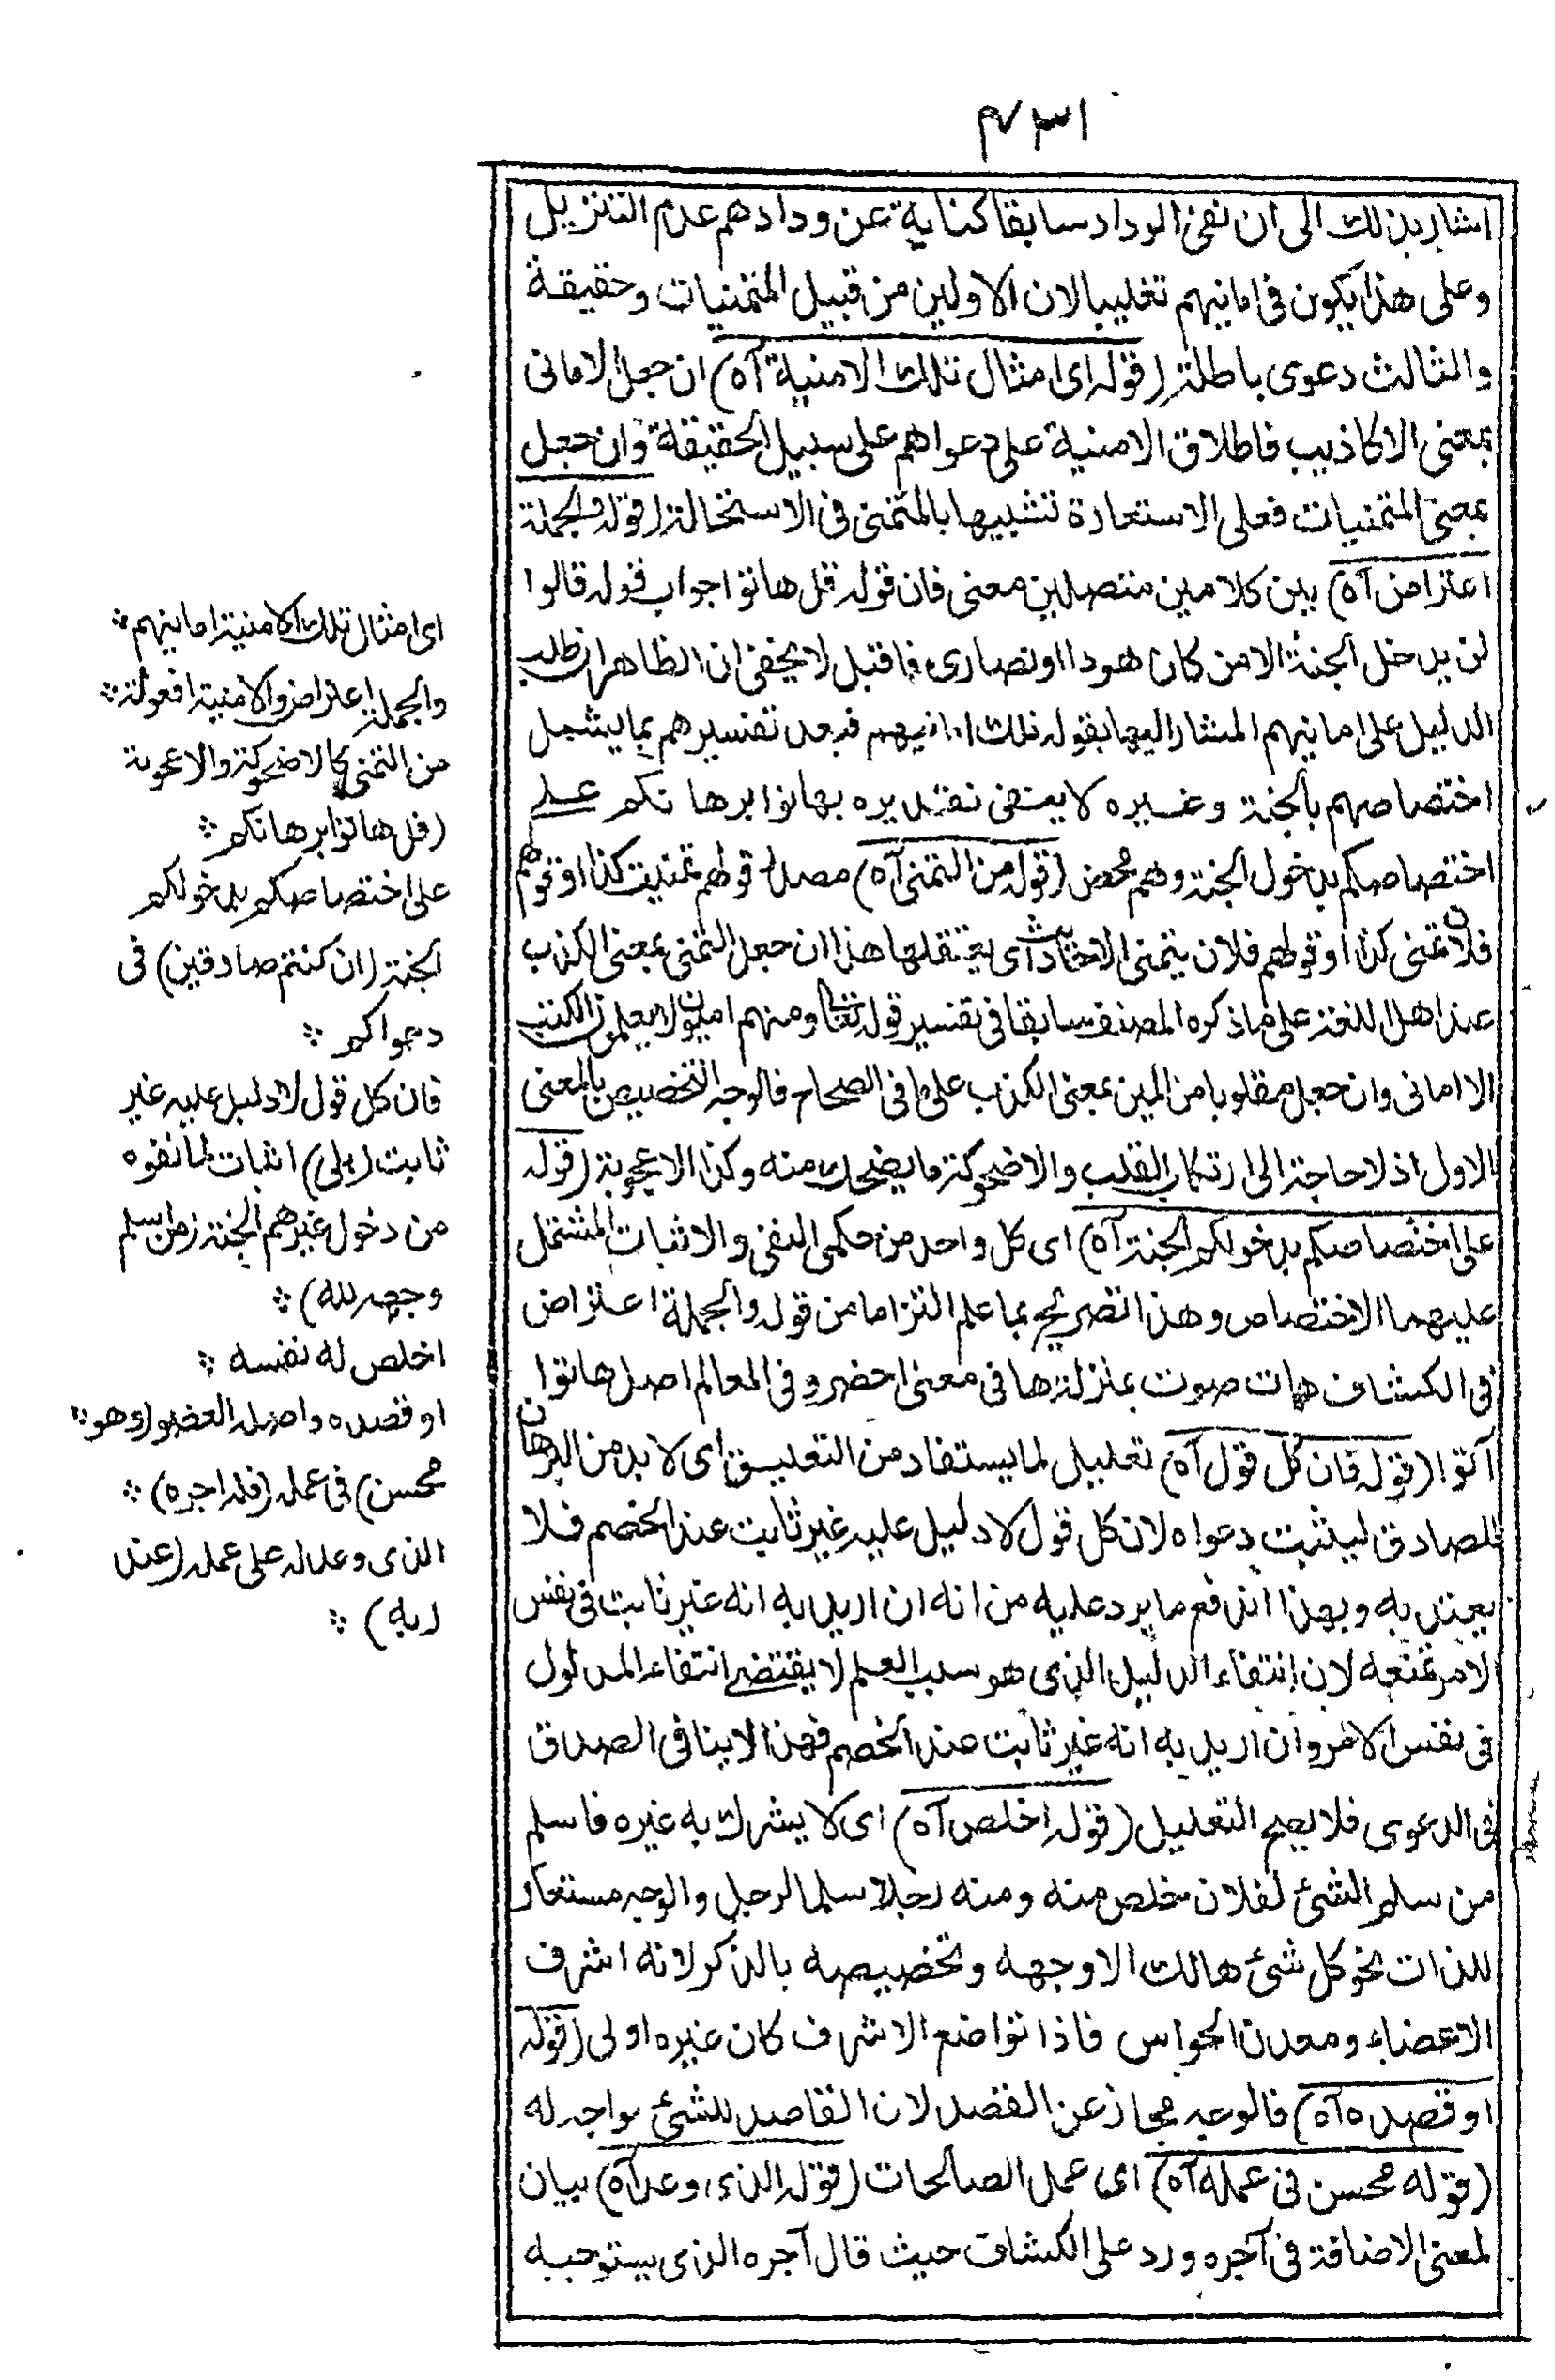 ٧٣١
اشار بذلك الى ان نفى الوداد سابقا كناية عن ودادهم عدم التنزيل
وعلى هذا يكون فى امانيهم تغليبا لان الاولين من قبيل المتمنيات وحقيقة
والثالث دعوى باطلة (قوله اى امثال تلك الامنية آه) ان جعل الامانى
بمعنى الاكاذيب فاطلاق الامنية على دعواهم على سبيل الحقيقة وان جعل
بمعنى المتمنيات فعلى الاستعارة تشبيها بالمتمنى فى الاستحالة (قوله والجملة
اعتراض آه) بين كلامين متصلين معنى فان قوله قل هاتوا جواب قوله قالوا
لن يدخل الجنة الا من كان هودا او نصارى فما قيل لا يخفى ان الظاهر ان طلب
الدليل على امانيهم المشار اليها بقوله تلك امانيهم فبعد تفسيرهم بما يشمل
اختصاصهم بالجنة وغيره لا ينبغى تقديره بهاتوا برهانكم على
اختصاصكم بدخول الجنة وهم محض (قوله من التمنى آه) مصدر قولهم تمنيت كذا او قولهم
فلان تمنى كذا او قولهم فلان يتمنى الاحاديث اى يفتعلها هذا ان جعل التمنى بمعنى الكذب
عند اهل اللغة على ما ذكره المصنف سابقا فى تفسير قوله تعالى ومنهم اميون لا يعلمون الكتب
الا امانى وان جعل مقلوبا من المين بمعنى الكذب على ما فى الصحاح فالوجه التخصيص بالمعنى
الاول اذ لا حاجة الى ارتكاب القلب والاضحوكة ما يضحك منه وكذا الاعجوبة (قوله
على اختصاصكم بدخولكم الجنة آه) اى كل واحد من حكمى النفى والاثبات المشتمل
عليهما الاختصاص وهذا تصريح بما علم التزاما من قوله والجملة اعتراض
فى الكشاف هات صوت بمنزلة ها فى معنى احضر وفى المعالم اصل هاتوا
آتوا (قوله فان كل قول آه) تعليل لما يستفاد من التعليق اى لا بد من البرهان
للصادق ليثبت دعواه لان كل قول لا دليل عليه غير ثابت عند الخصم فلا
يعتد به وبهذا اندفع ما يرد عليه من انه ان اريد به انه غير ثابت فى نفس
الامر تمنعه لان انتفاء الدليل الذى هو سبب العلم لا يقتضى انتفاء المدلول
فى نفس الامر وان اريد به انه غير ثابت عند الخصم فهذا لا ينافى الصدق
فى الدعوى فلا يصح التعليل (قوله اخلص آه) اى لا يشرك به غيره فاسلم
من سلم الشئ لفلان خلص منه ومنه رجلا سلما لرجل والوجه مستعار
للذات نحو كل شئ هالك الا وجهه وتخصيصه بالذكر لانه اشرف
الاعضاء ومعدن الحواس فاذا تواضع الاشرف كان غيره اولى (قوله
او قصده آه) فالوجه مجاز عن القصد لان القاصد للشئ يواجه له
(قوله محسن فى عمله آه) اى عمل الصالحات (قوله الذى وعد آه) بيان
لمعنى الاضافة فى آجره ورد على الكشاف حيث قال آجره الذى يستوجبه
اى امثال تلك الامنية امانيهم
والجملة اعتراض والامنية افعولة
من التمنى كالاضحوكة والاعجوبة
(قل هاتوا برهانكم
على اختصاصكم بدخولكم
الجنة (ان كنتم صادقين) فى
دعواكم
فان كل قول لا دليل عليه غير
ثابت (بلى) اثبات لما نفوه
من دخول غيرهم الجنة (من اسلم
وجهه لله)
اخلص له نفسه
او قصده واصله العضو (وهو
محسن) فى عمله (فله اجره)
الذى وعد له على عمله (عند
ربه)